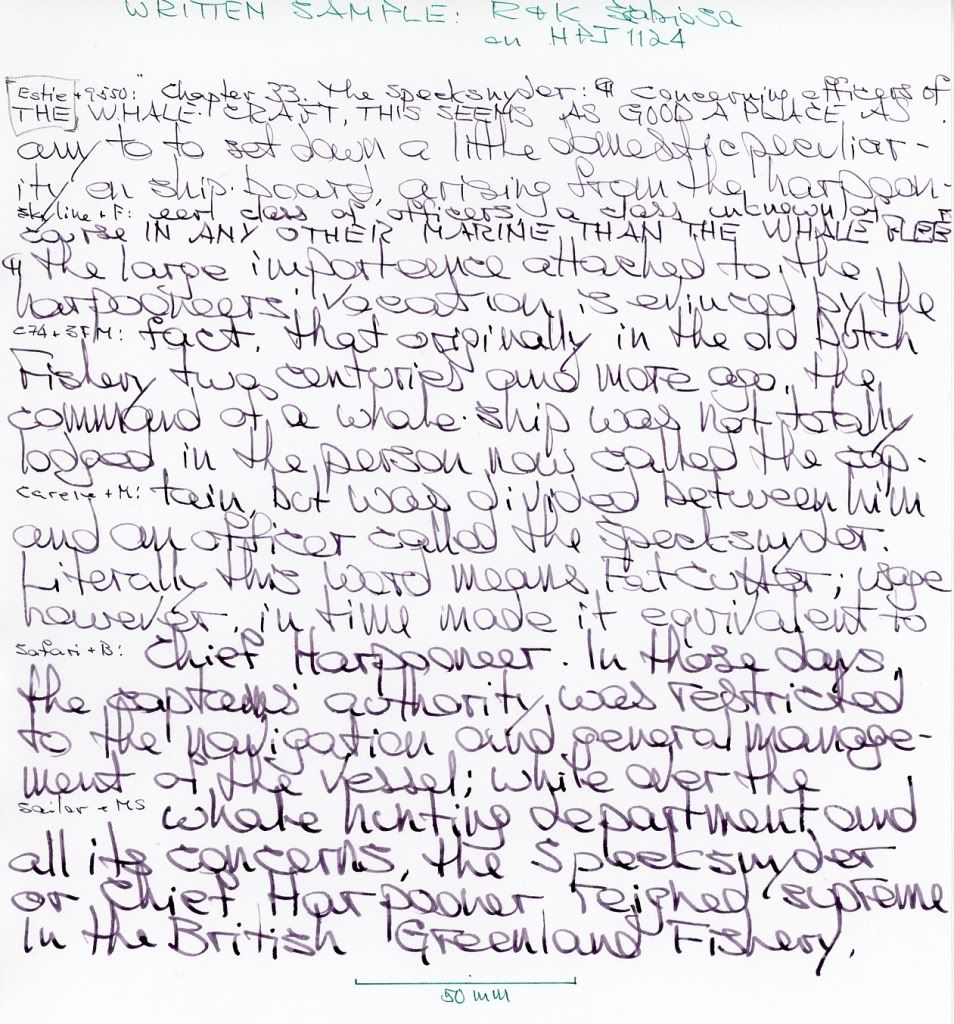 WRITTEN SAMPLE: R&K Scabiosa
on HPJ1124
Estie + 9550: "Chapter 33. The Specksnyder: ¶ Concerning officers of
THE WHALE-CRAFT, THIS SEEMS AS GOOD A PLACE AS
any to to set down a little domestic peculiar-
ity on ship-board, arising from the harpoon-
Skyline + F: eer class of officers, a class unknown of
course IN ANY OTHER MARINE THAN THE WHALE FLEET
¶ the large importance attached to the
harpooneers' vocation, is evinced by the
C74 + 3FM: fact, that originally in the old Dutch
Fishery two centuries and more ago, the
command of a whale-ship was not totally
lodged in the person now called the cap-
Carene + M: tain, but was divided between him
and an officer called the Specksnyder.
Literally this word means Fat-Cutter; usage
however, in time made it equivalent to
Safari + B: Chief Harpooneer. In those days,
the captain's authority was restricted
to the navigation and general manage-
ment of the vessel; while over the
Sailor + MS whale hunting department and
all its concerns, the Specksnyder
or Chief Harpooner reigned supreme
In the British Greenland Fishery,
50 mm